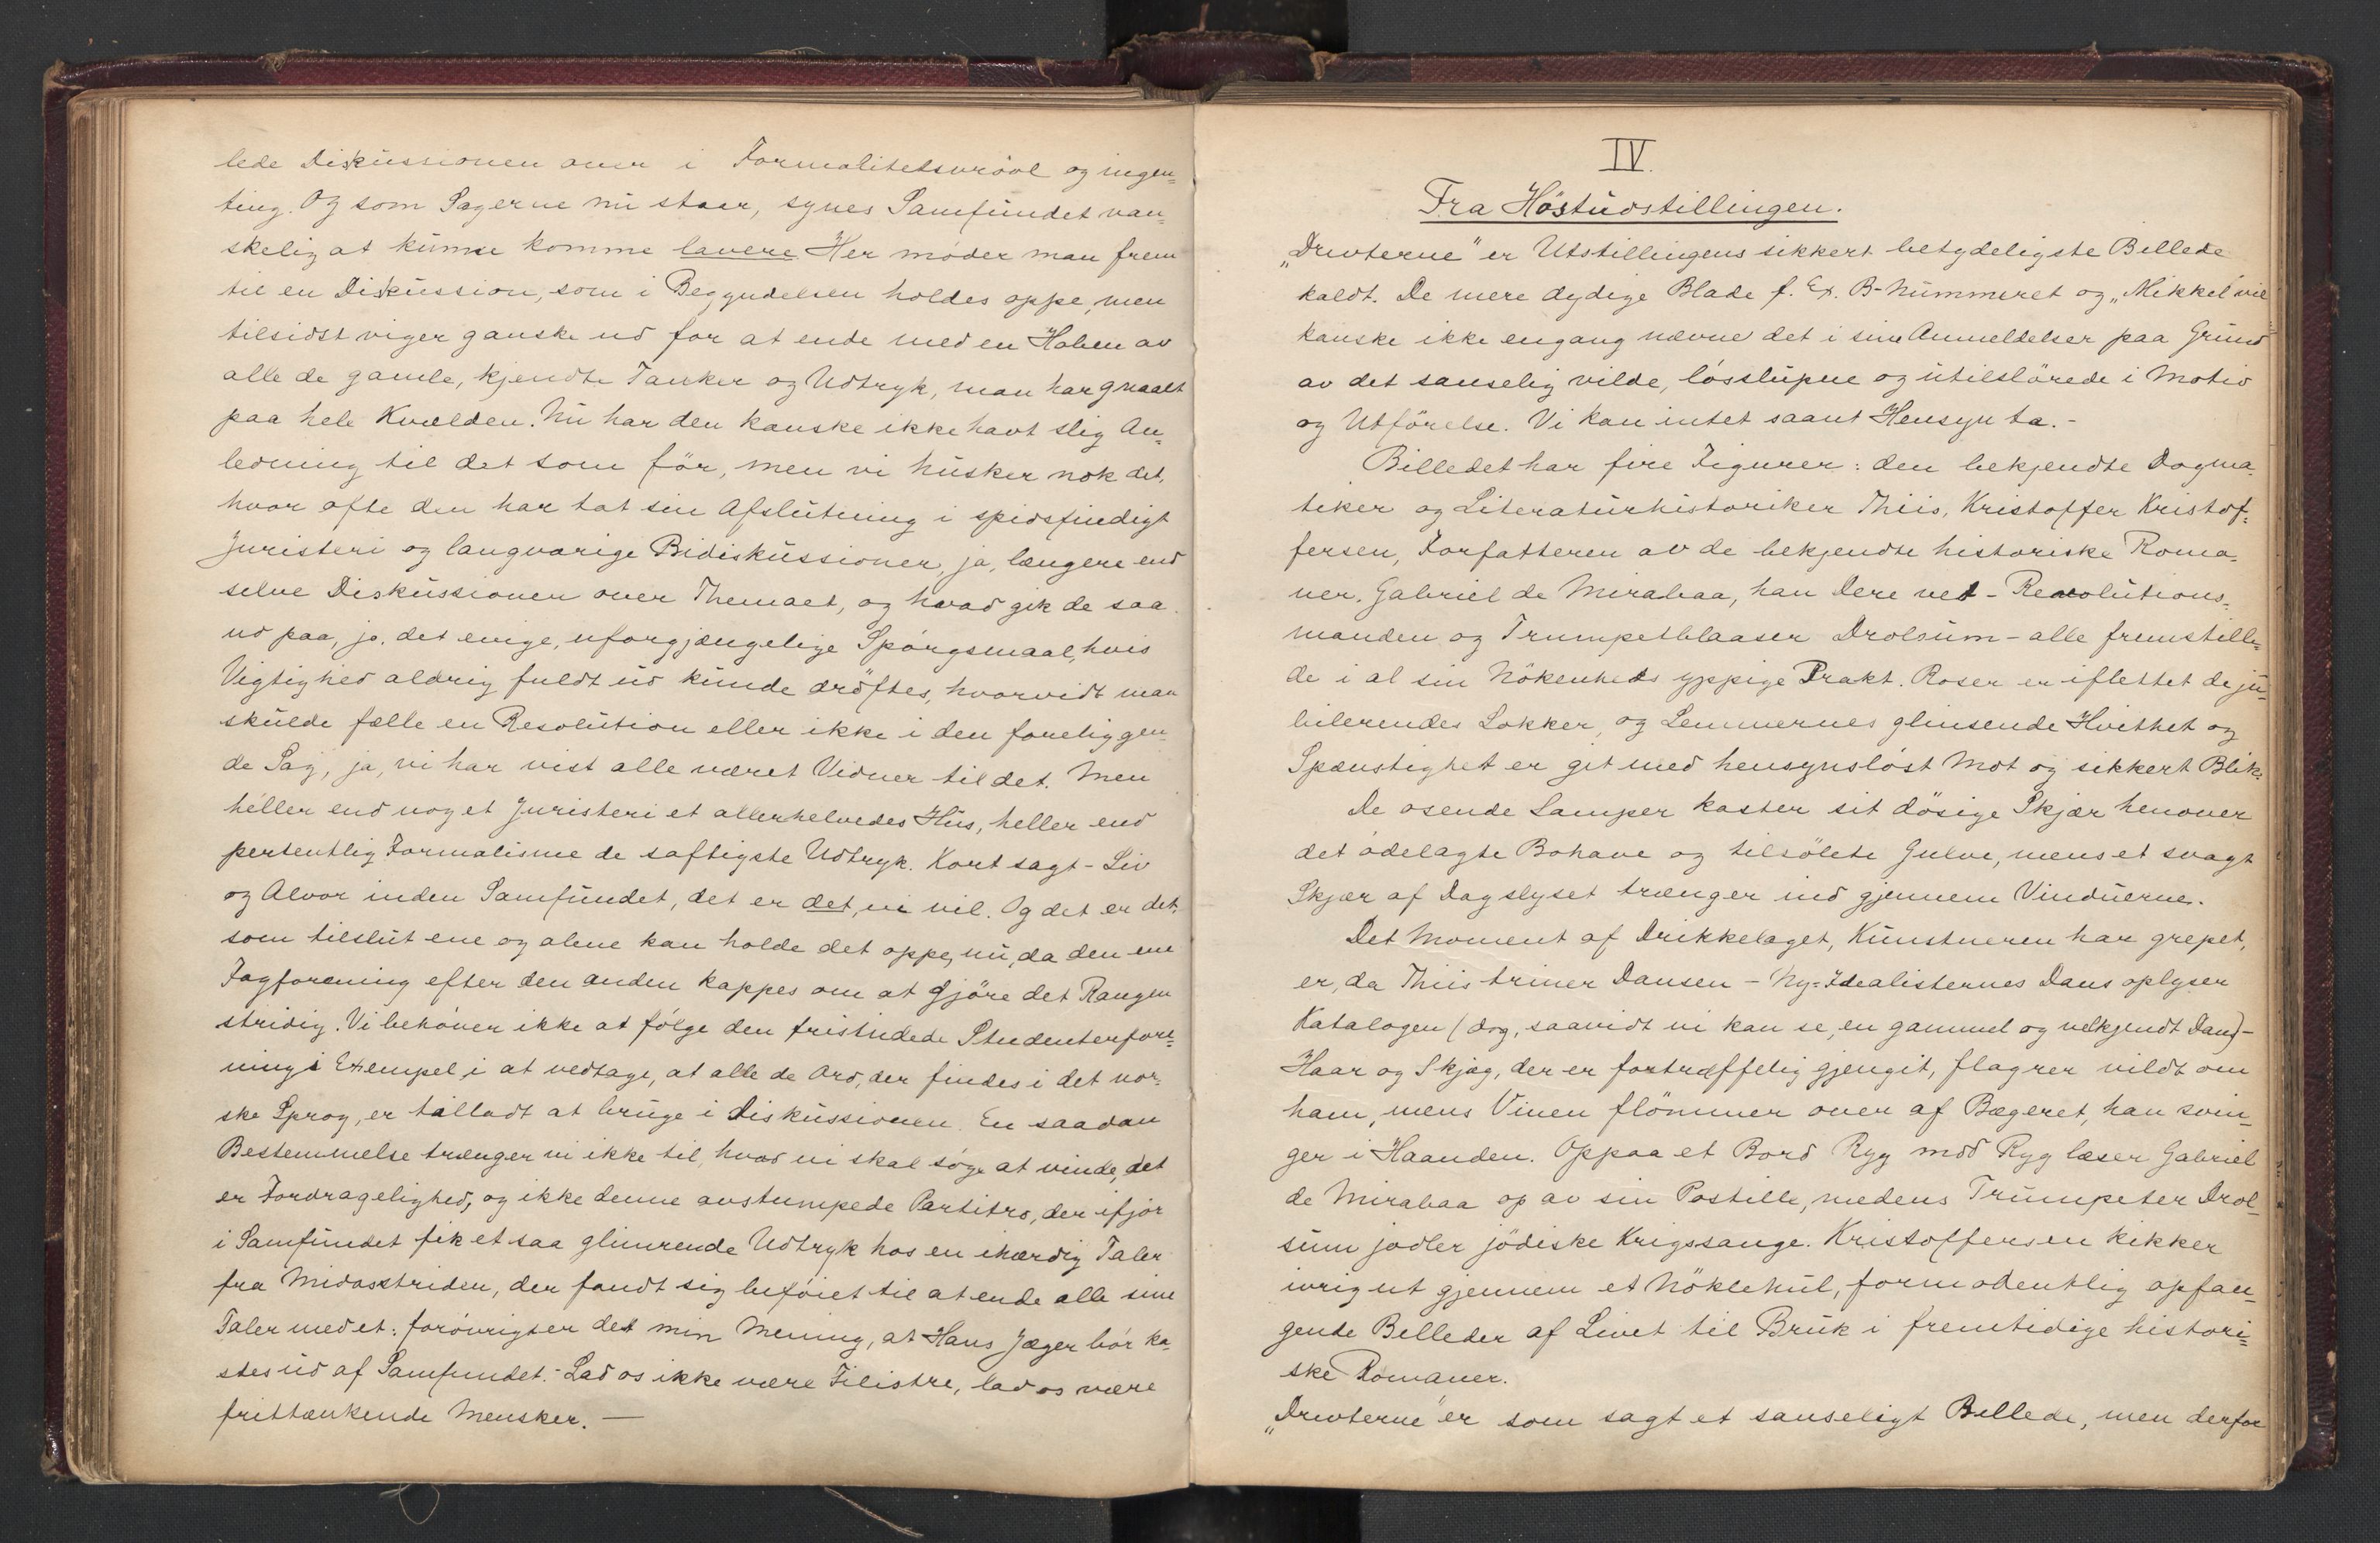 lede Diskussionen over i Formalitetsvrövl og ingen=
ting. Og som Sagerne nu staar, synes Samfundet van=
skelig at kunne komme lavere Her möder man frem
til en Diskussion, som i Begyndelsen holdes oppe, men
tilsidst viger ganske ud for at ende med en Haben av
alle de gamle, kjendte Tanker og Udtryk, man har gnaalt
paa hele Kvælden. Nu har den kanske ikke havt slig An=
ledning til det som för, men vi husker nok det,
hvor ofte den har tat sin Afslutning i spidsfindigt
Juristeri og langvarige Bidiskussioner, ja, længere end
selve Diskussionen over Themaet, og hvad gik de saa
ud paa, jo, det evige, uforgjængelige Spörgsmaal, hvis
Vigtighed aldrig fuldt ud kunde dröftes, hvorvidt man
skulde fælle en Resolution eller ikke i den foreliggen=
de Sag, ja, vi har vist alle været Vidner til det. Men
heller end noget Juristeri et allerhelvedes Hus, heller end
pertentlig Formalisme de saftigste Udtryk. Kort sagt - Liv
og Alvor inden Samfundet, det er det, vi vil. Og det er det,
som tilslut ene og alene kan holde det oppe, nu, da den ene
Fagforening efter den anden kappes om at gjöre det Rangen
stridig. Vi behöver ikke at fölge den fristindede Studenterfore=
nings Exempel i at vedtage, at alle de Ord, der findes i det nor=
ske Sprog, er tilladt at bruge i Diskussionen. En saadan
Bestemmelse trænger vi ikke til, hvad vi skal söge at vinde, det
er Fordragelighed, og ikke denne avstumpede Partitro, der ifjor
i Samfundet fik et saa glimrende Udtryk hos en ihærdig Taler
fra Midasstriden, der fandt sig beföiet til at ende alle sine
Taler med et: forövrigt er det min Mening, at Hans Jæger bör ka=
stes ud af Samfundet. - Lad os ikke være Filistre, lad os være
frittænkende Mensker. —
IV.
Fra Höstudstillingen.
„Drivterne" er Utstillingens sikkert betydeligste Billede
kaldt. De mere dydige Blade f. Ex. B-Nummeret og „Mikkel" vil
kanske ikke engang nævne det i sine Anmeldelser paa Grund
av det sanselig vilde, lösslupne og utilslörede i Motiv
og Utförelse. Vi kan intet saant Hensyn ta. -
Billedet har fire Figurer: den bekjendte Dogma=
tiker og Literaturhistoriker Thiis, Kristoffer Kristof=
fersen, Forfatteren av de bekjendte historiske Roma=
ner. Gabriel de Mirabaa, han Dere vet - Revolutions=
manden og Trumpetblaaser Drolsum - alle fremstille=
de i al sin Nökenheds yppige Prakt. Roser er iflettet de ju=
bilerendes Lokker, og Lemmernes glinsende Hvithet og
Spænstighet er git med hensynslöst Mot og sikkert Blik.
De osende Lamper kaster sit dösige Skjær henover
det ödelagte Bohave og tilsölete Gulve, mens et svagt
Skjær af Dagslyset trænger ind gjennem Vinduerne.
Det Moment af Drikkelaget, Kunstneren har grepet,
er, da Thiis triner Dansen - Ny=Idealisternes Dans oplyser
Katalogen (dog, saavidt vi kan se, en gammel og velkjendt Dans) -
Haar og Skjæg, der er fortræffelig gjengit, flagrer vildt om
ham, mens Vinen flömmer over af Bægeret, han svin=
ger i Haanden. Oppaa et Bord Ryg mod Ryg læser Gabriel
de Mirabaa op av sin Postille, medens Trumpeter Drol=
sum jodler jödiske Krigssange. Kristoffersen kikker
ivrig ut gjennem et Nöklehul, formodentlig opfan=
gende Billeder af Livet til Bruk i fremtidige histori=
ske Romaner.
„Drivterne" er som sagt et sanseligt Billede, men derfor